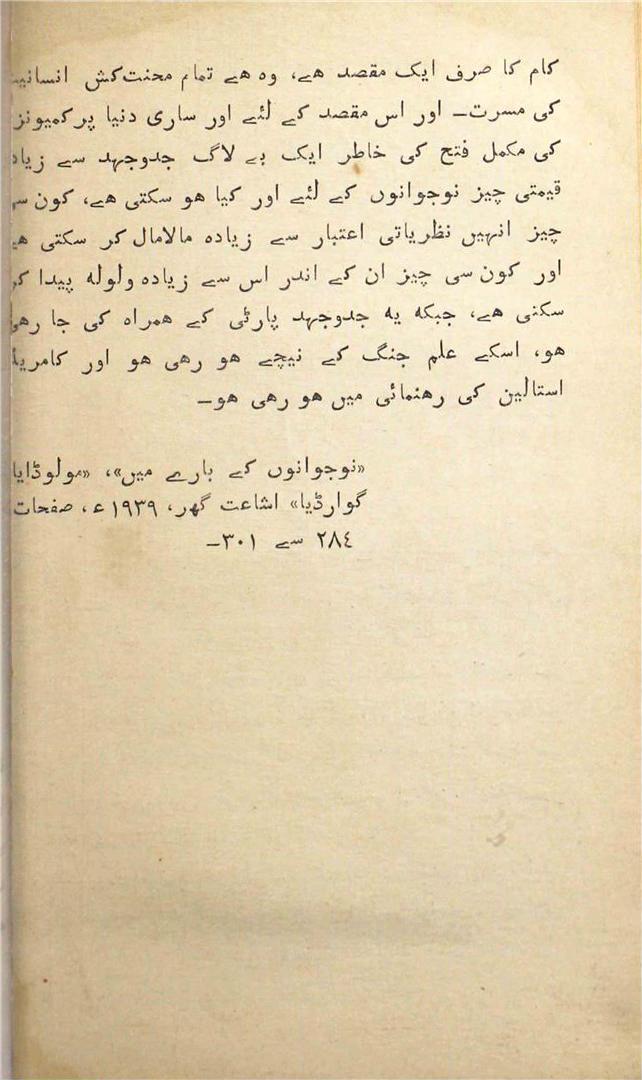 کام کا صرف ایک مقصد ہے، وہ ہے تمام محنت‌کش
کی مسرت۔ اور اس مقصد کے لئے اور ساری دنیا پر
کی مکمل فتح کی خاطر ایک بے لاگ جدوجہد سے
قیمتی چیز نوجوانوں کے لئے اور کیا ہو سکتی ہے، کون
چیز انہیں نظریاتی اعتبار سے زیادہ مالامال کر سکتی
اور کون سی چیز ان کے اندر اس سے زیادہ ولولہ پیدا
سکتی ہے، جبکہ یہ جدوجہد پارٹی کے ہمراہ کی جا
ہو، اسکے علم جنگ کے نیچے ہو رہی ہو اور
استالین کی رہنمائی میں ہو رہی ہو۔
«نوجوانوں کے بارے میں»، «مولوڈایا
گوارڈیا» اشاعت گھر، ۱۹۳۹ء، صفحات
۲۸٤ سے ۳۰۱۔